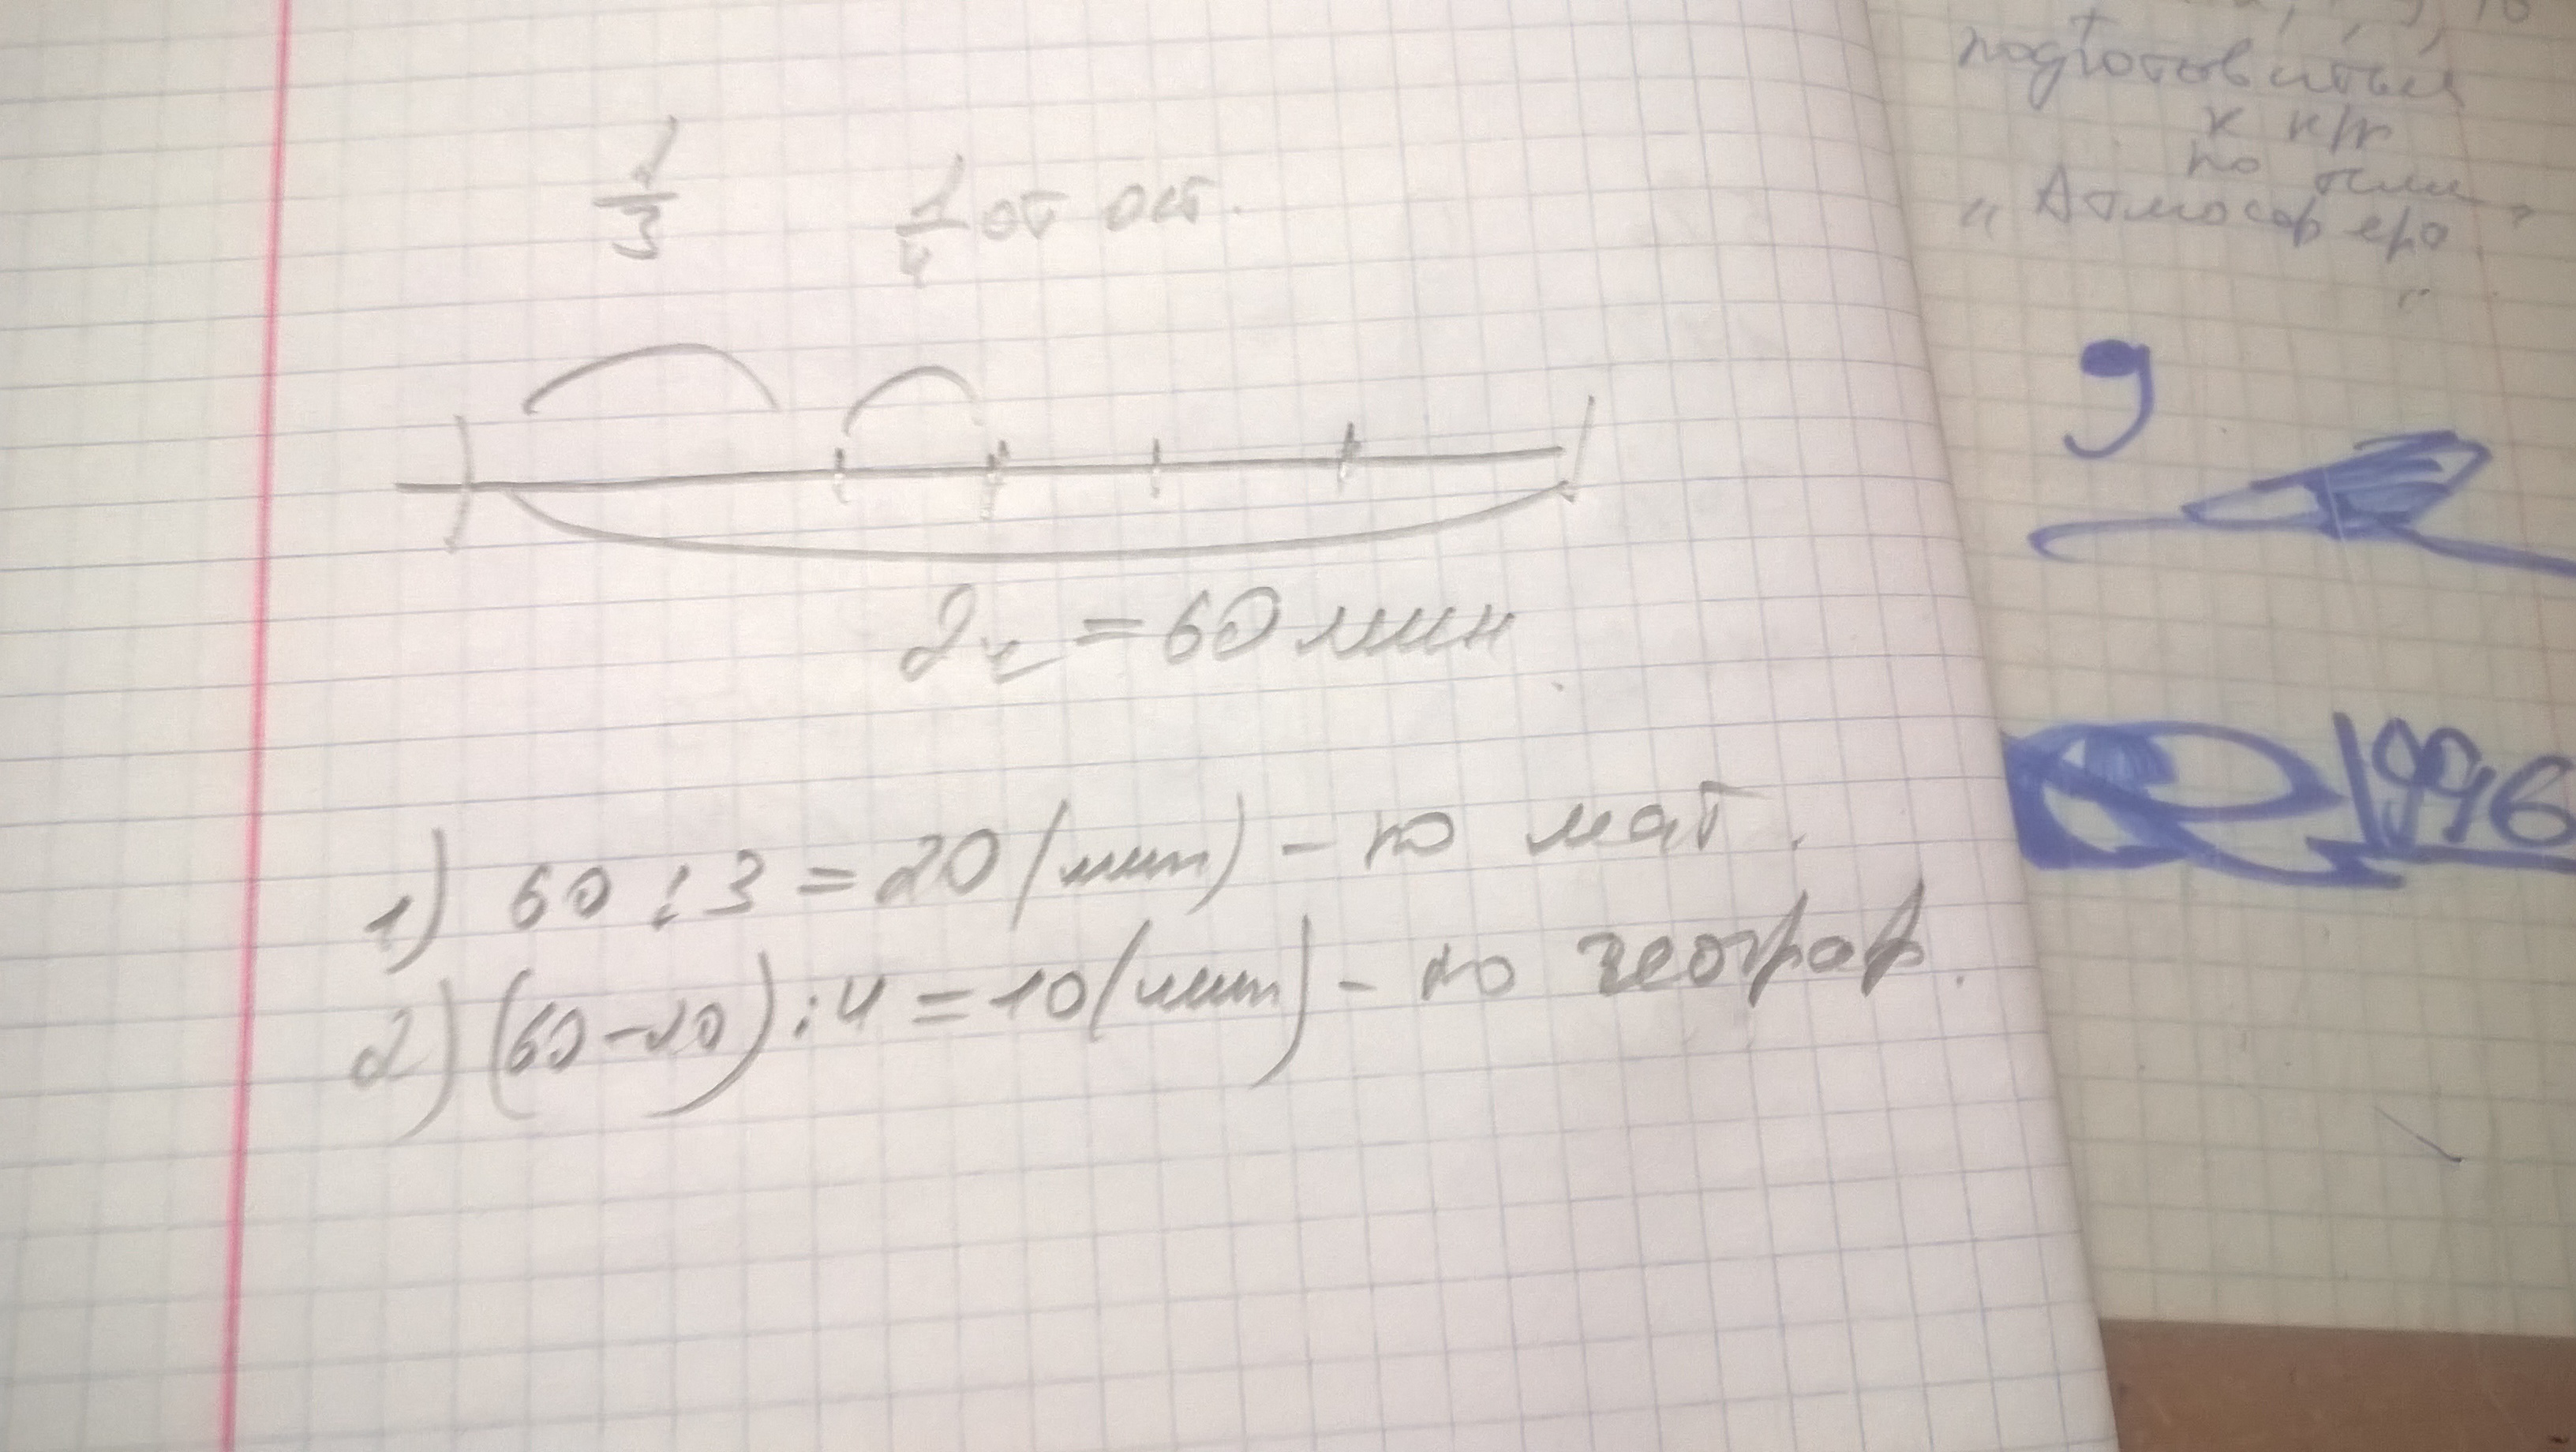 1/3 1/4 от ост.
2ч = 60 мин
1) 60 : 3 = 20 (мин) - по мат.
2) (60-20) : 4 = 10 (мин) - по географ.
подготовиться
к к/р
по теме
"Атмосфера"
9
1996